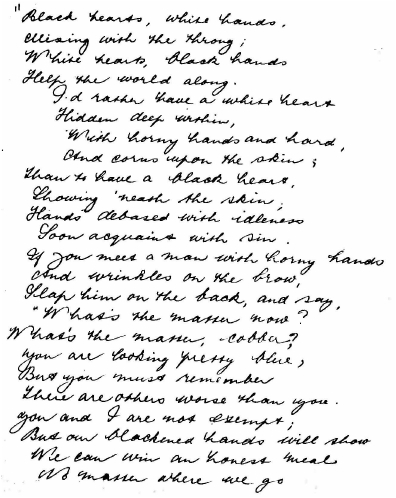 "Black hearts, white hands,
Mixing with the throng;
White hearts, black hands
Help the world along.
I'd rather have a white heart
Hidden deep within,
With horny hands and hard,
And corns upon the skin;
Than to have a black heart,
Showing 'neath the skin;
Hands debased with idleness
Soon acquaint with sin.
If you meet a man with horny hands
And wrinkles on the brow,
Slap him on the back, and say,
"What's the matter now?
What's the matter, cobber?
you are looking pretty blue,
But you must remember
There are others worse than you.
you and I are not exempt;
But our blackened hands will show
We can win an honest meal
No matter where we go